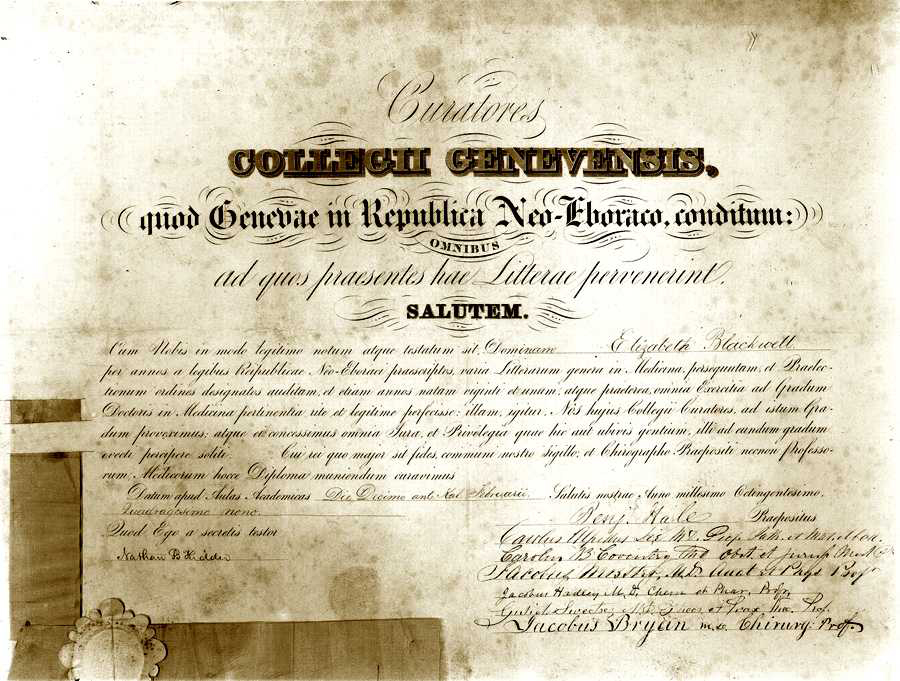 Curatores
COLLEGII GENEVENSIS,
quod Genevae in Republica Neo-Eboraco, conditum:
OMNIBUS
ad quos praesentes hae Litterae pervenerint,
SALUTEM.
Cum Nobis in modo legitimo notum atque testatum sit, Dominam Elizabeth Blackwell
per annos a legibus Reipublicae Neo-Eboraci praescriptos, varia Litterarum genera in Medicina, persequutam, et Praelec-
tionum ordines designatos auditam, et etiam annos natam viginti et unum, atque praeterea, omnia Exercitia ad Gradum
Doctoris in Medicina pertinentia rite et legitime perfecisse: illam, igitur, Nos hujus Collegii Curatores, ad istum Gra-
dum proveximus; atque ei concessimus omnia Jura, et Privilegia quae hic aut ubivis gentium, ad eundum gradum
evecti percipere soliti. Cui rei quo major sit fides, communi nostro sigillo, et Chirographo Praepositi necnon Professo-
rum, Medicorum hocce Diploma muniendum curavimus
Datum apud Aulas Academicas Die Decimo ante Kal Februarii. Salutis nostrae Anno millesimo Octingentesimo,
Quadragesimo nono.
Benj. Hale Praepositus
Quod Ego a secretis testor
Nathan B Kidder
Carolus Alphus Lee MD. Prof. Path. et Mat. Med.
Carolus B Coventry MD Obst et Jurisp Med
Jacobus Webster, M.D. Anat et Phys Prof
Jacobus Hadley M.D. Chem et Phar. Prof
M.D. et Prax Prof.
Jacobus Bryan M.D. Chirurg. Prof.